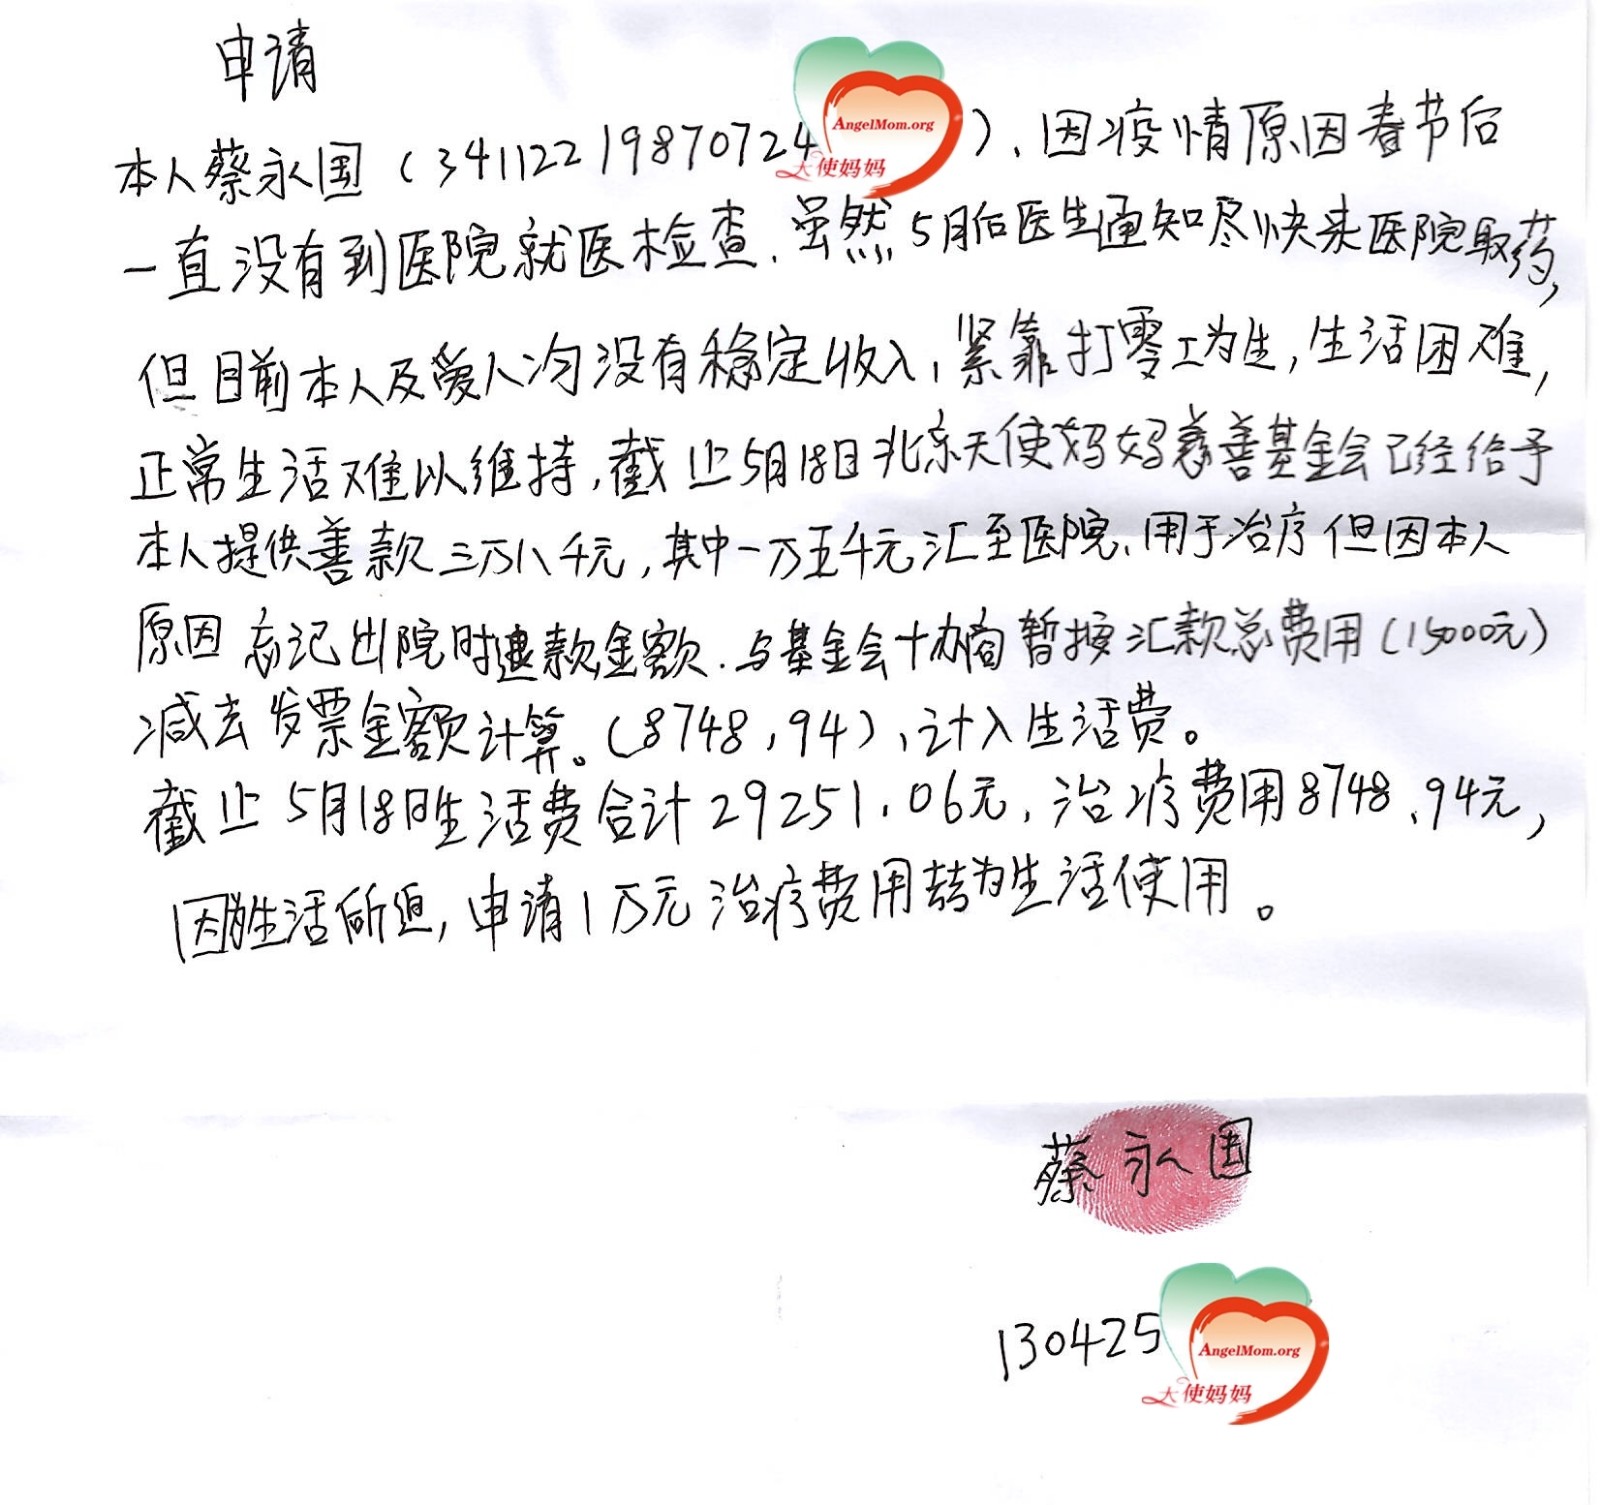 申请
本人蔡永国（34112219870724 AngelMom.org 天使妈妈 ）、因疫情原因春节后
一直没有到医院就医检查．虽然5月后医生通知尽快来医院取药，
但目前本人及爱人均没有稳定收入，紧靠打零工为生，生活困难，
正常生活难以维持，截止5月18日北京天使妈妈慈善基金会已经给予
本人提供善款三万八千元，其中一万五千元汇至医院、用于治疗 但因本人
原因 忘记出院时退款金额．与基金会协商暂按汇款总费用（15000元）
减去发票金额计算。（8748，94）、计入生活费。
截止5月18日生活费合计29251.06元，治疗费用8748.94元，
因为生活所迫，申请1万元治疗费用转为生活使用。
蔡永国
130425
AngelMom.org
天使妈妈